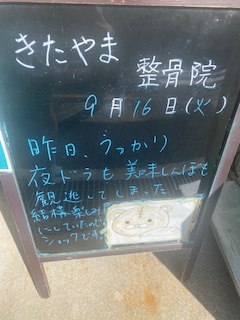 きたやま
整骨院
9月16日(火)
昨日、うっかり
夜ドラも美味しんぼも
観逃してしまった
結構楽しみ
にしていたのに
ショックです